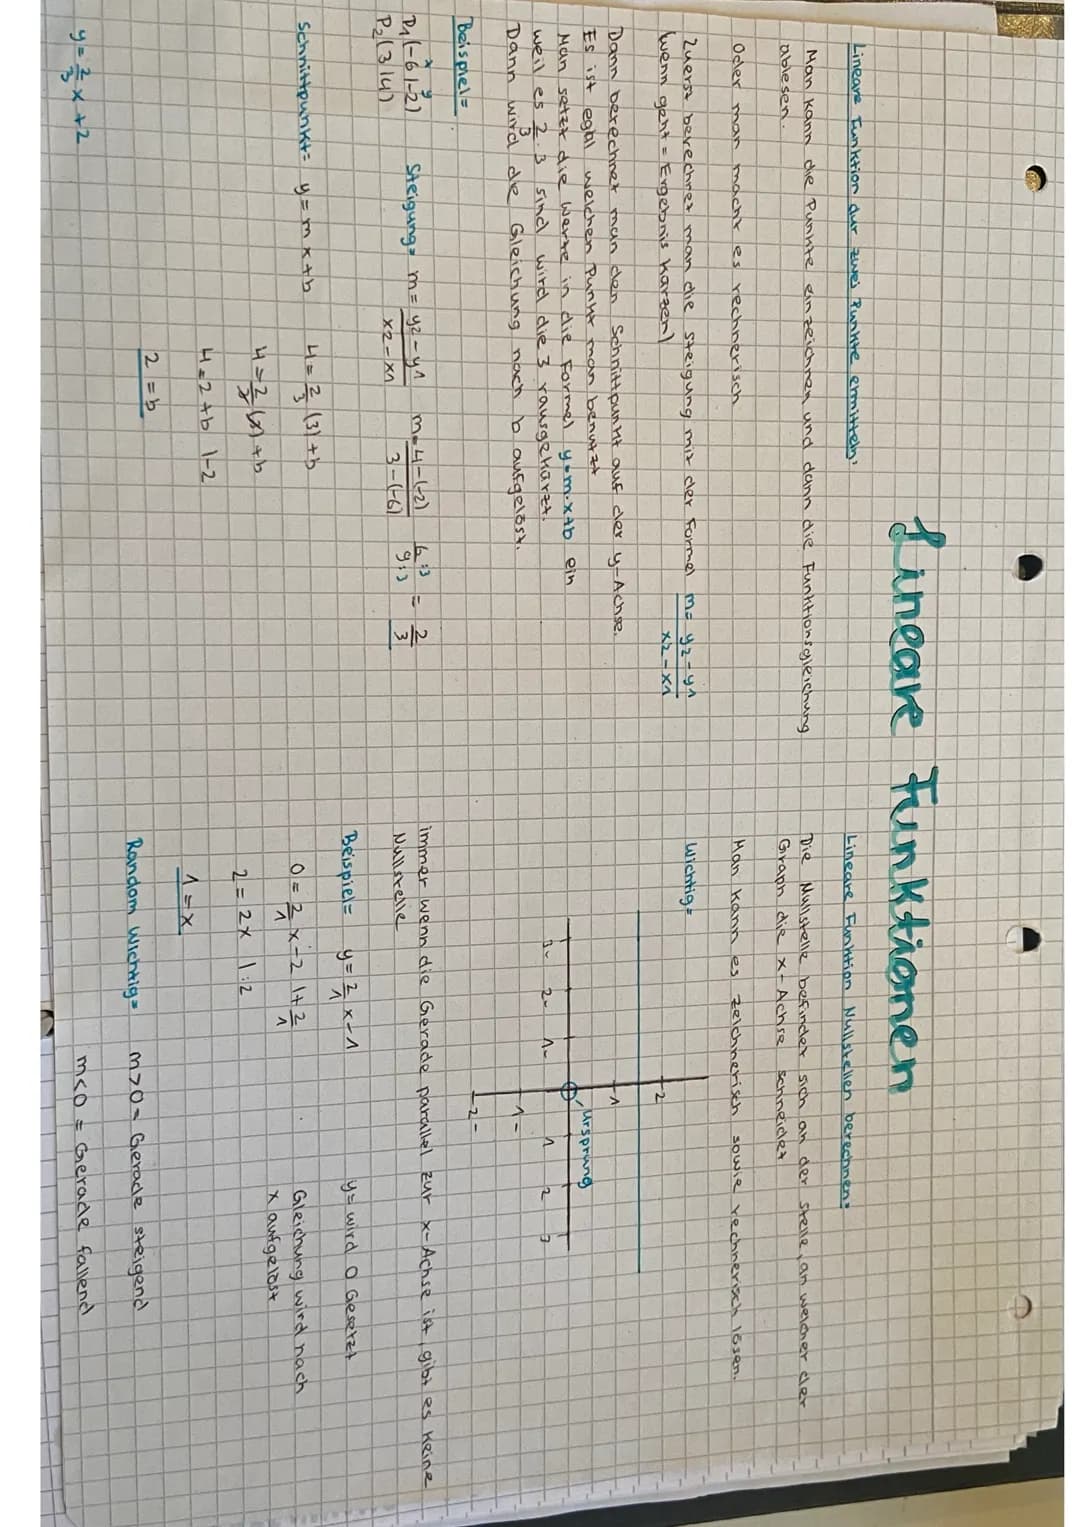 Lineare Funktionen
Lineare Funktion dur zwei Punkte ermitteln:
Man kann die Punkte einzeichnen und dann die Funktionsgleichung
ablesen.
Oder man macht es rechnerisch
Zuerst berechnet man die Steigung mit der Formel m = y2 - y1 / x2 - x1
(wenn geht = Ergebnis kürzen)
Dann berechnet man den Schnittpunkt auf der y-Achse.
Es ist egal welchen Punkt man benutzt
Man setzt die Werte in die Formel y=m·x+b ein
weil es 2/3 · 3 sind wird die 3 rausgekürzt.
Dann wird die Gleichung nach b aufgelöst.
Beispiel=
x y
P1 (-6|-2) Steigung= m = y2 - y1 / x2 - x1 m = 4-(-2) / 3-(-6) 6:3 / 9:3 = 2/3
P2 (3|4)
Schnittpunkt= y = m x + b 4 = 2/3 (3) + b
4 = 2/3 (3) + b
4 = 2 + b |-2
2 = b
y = 2/3 x + 2
Lineare Funktion Nullstellen berechnen=
Die Nullstelle befindet sich an der Stelle, an welcher der
Graph die x-Achse schneidet
Man kann es zeichnerisch sowie rechnerisch lösen.
Wichtig=
2
1
Ursprung
3- 2- 1- 1 2 3
1-
2-
immer wenn die Gerade parallel zur x-Achse ist, gibt es keine
Nullstelle
Beispiel= y = 2/1 x - 1 y = wird 0 Gesetzt
0 = 2/1 x - 2 | + 2/1 Gleichung wird nach
x aufgelöst
2 = 2x |:2
1 = x
Random Wichtig= m>0 = Gerade steigend
m<0 = Gerade fallend